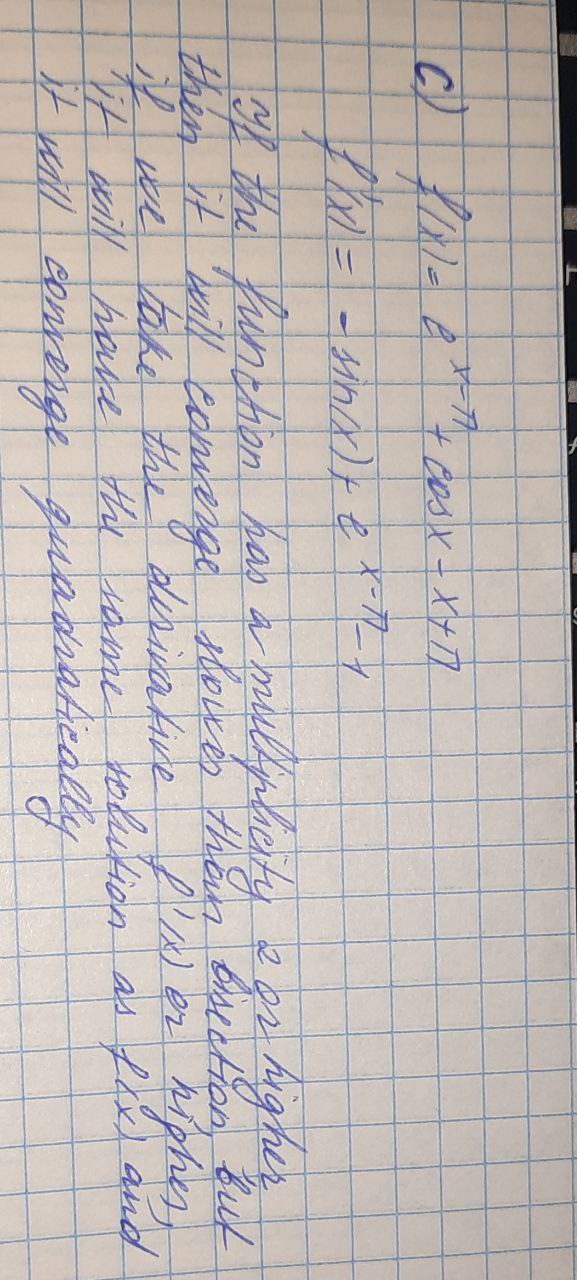 c) f(x) = e^{x-π} + cos x - x + π
f'(x) = - sin(x) + e^{x-π} - 1
If the function has a multiplicity 2 or higher
then it will converge slower than bisection but
if we take the derivative f'(x) or higher,
it will have the same solution as f(x) and
it will converge quadratically